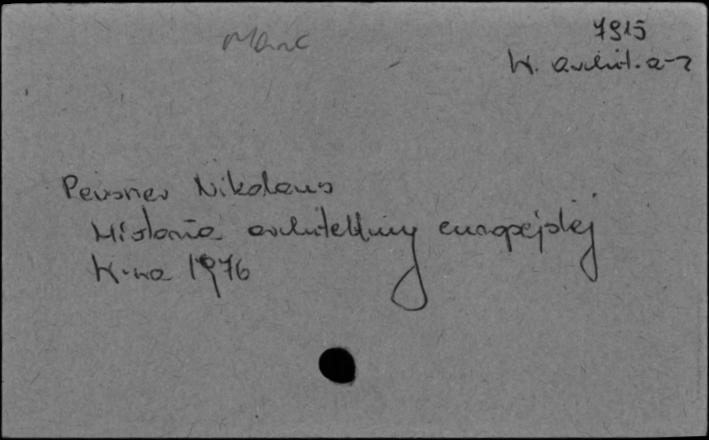 7915
H. archit. a-z
Pevsner Nikolaus
Historia architektury europejskiej
W-wa 1976